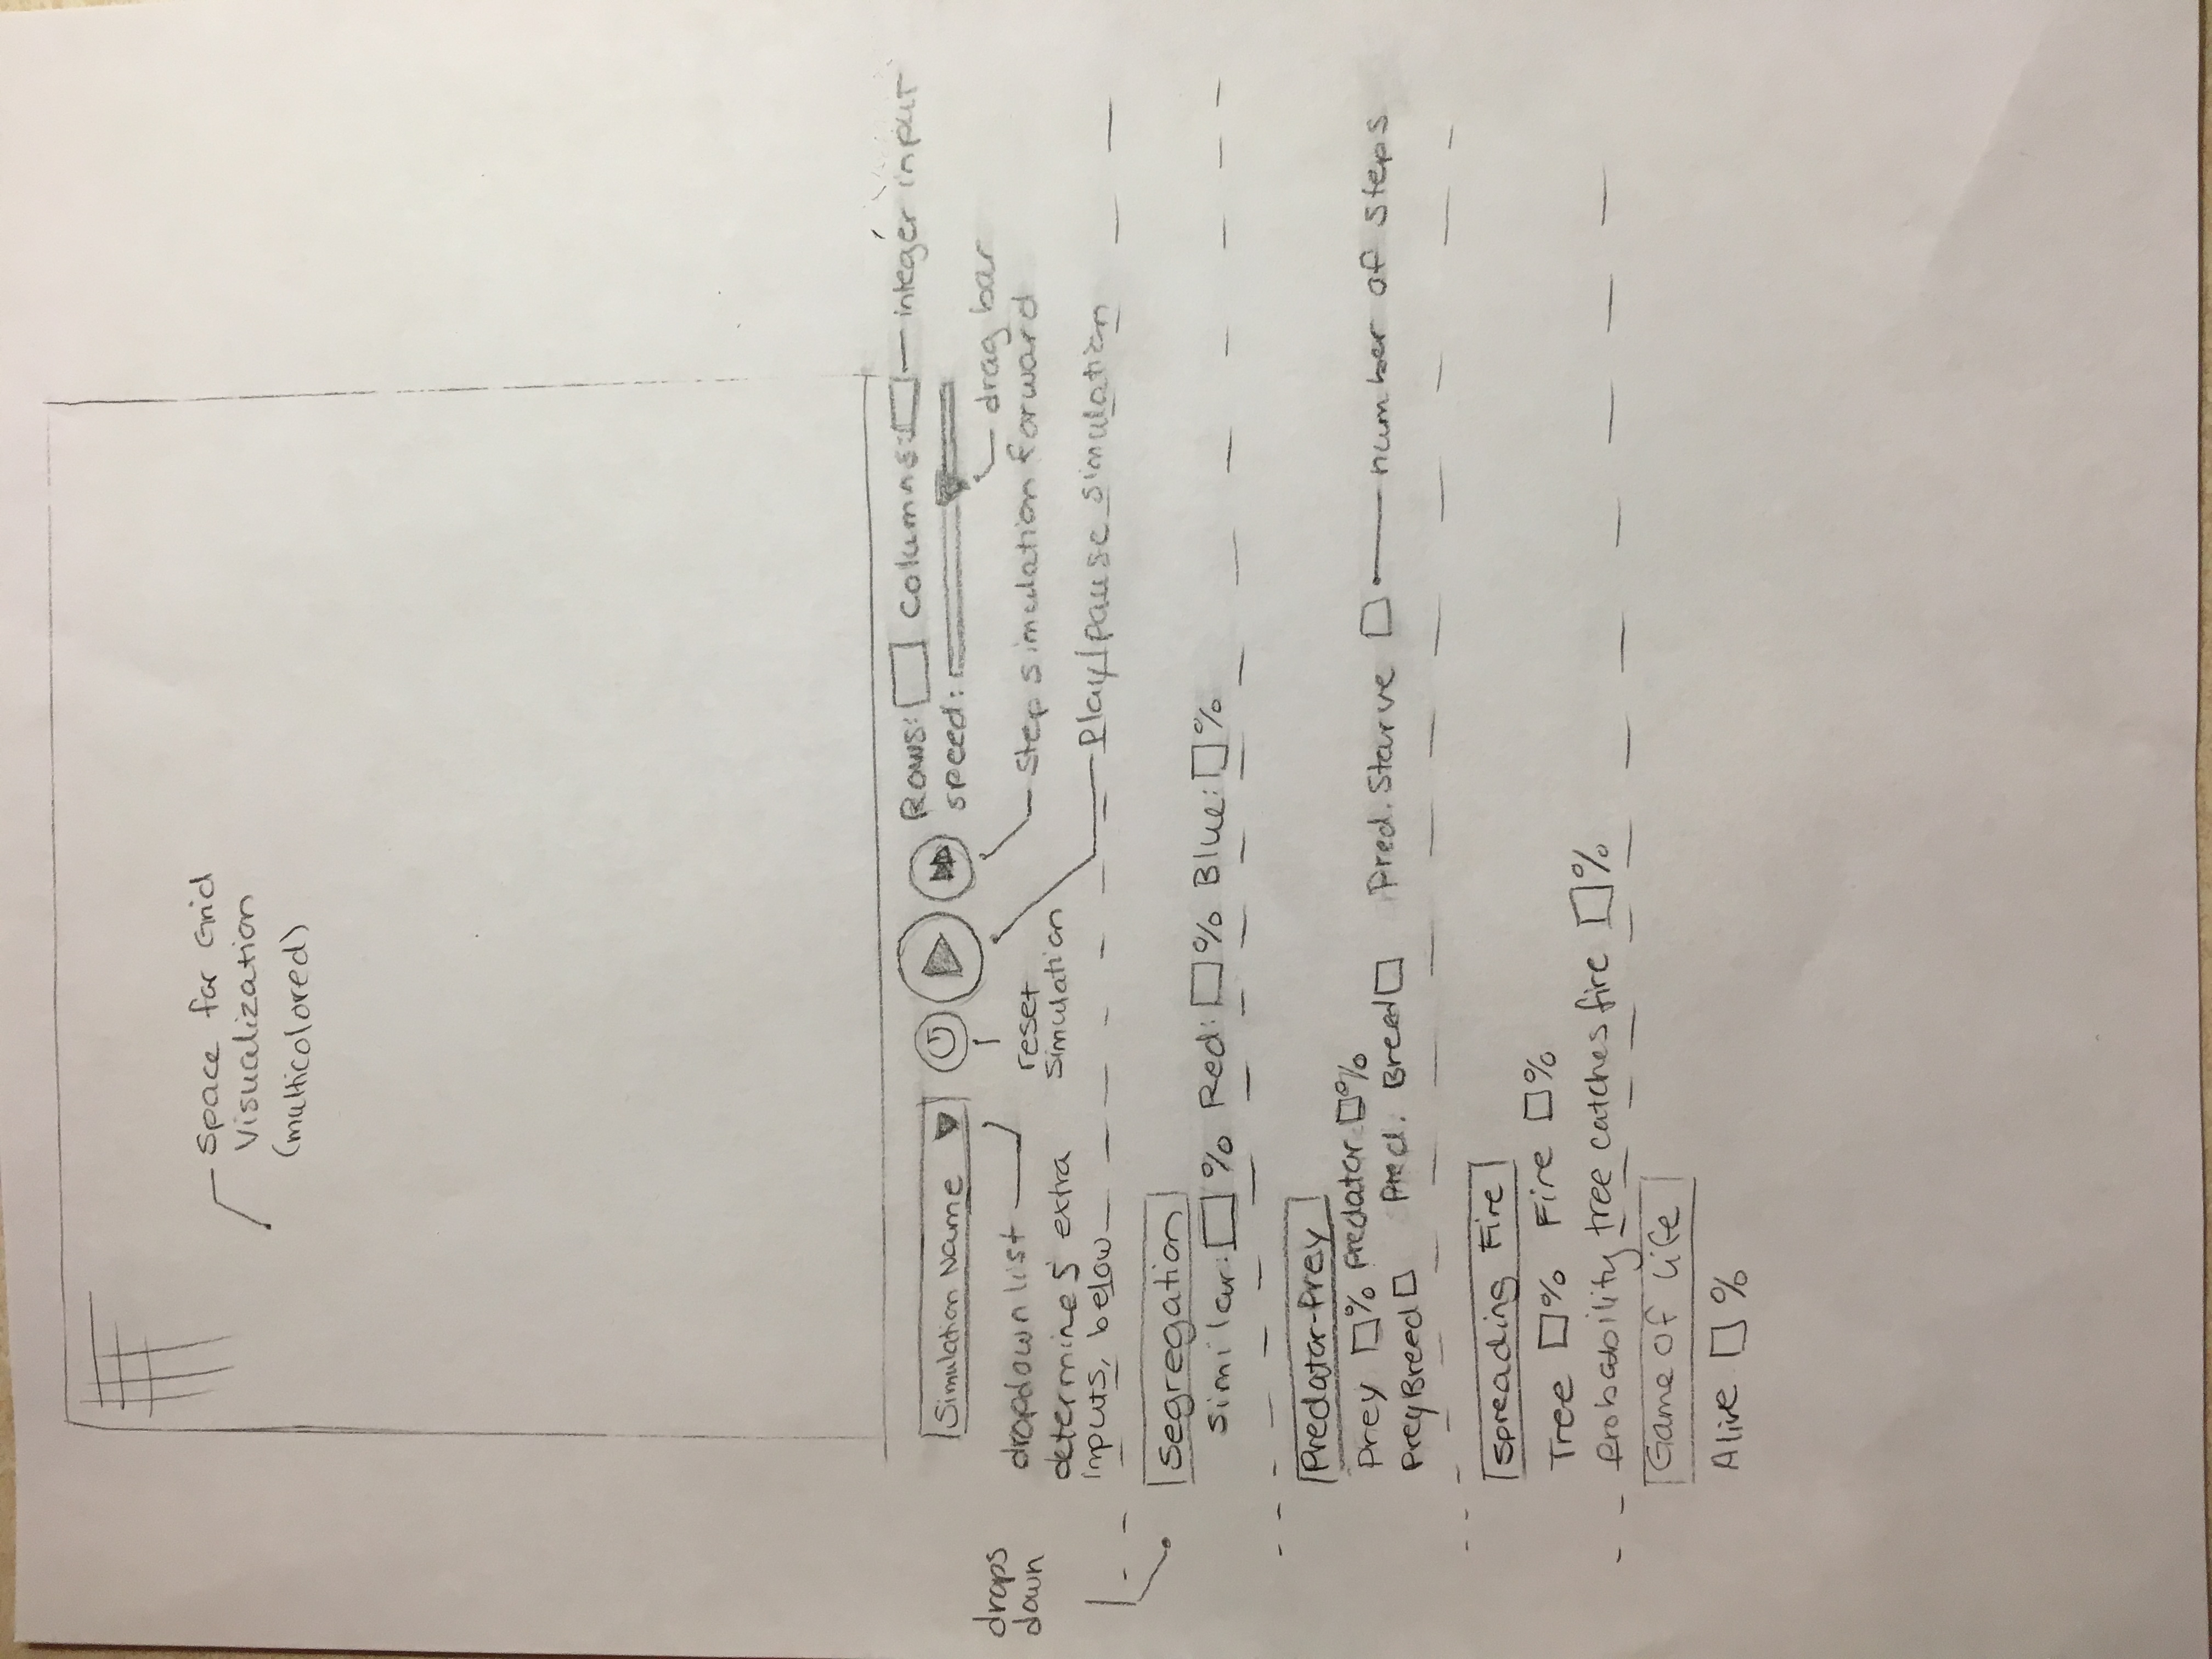 Space for Grid
Visualization
(multicolored)
Rows: Columns: integer input
Simulation Name
speed:
drag bar
drops
down
dropdown list
determines extra
inputs, below
reset
simulation
Step simulation forward
Play/pause simulation
Segregation
Similar: % Red: % Blue: %
Predator-Prey
Prey % Predator %
Prey Breed Pred. Breed Pred. Starve number of steps
Spreading Fire
Tree % Fire %
Probability tree catches fire %
Game of Life
Alive %